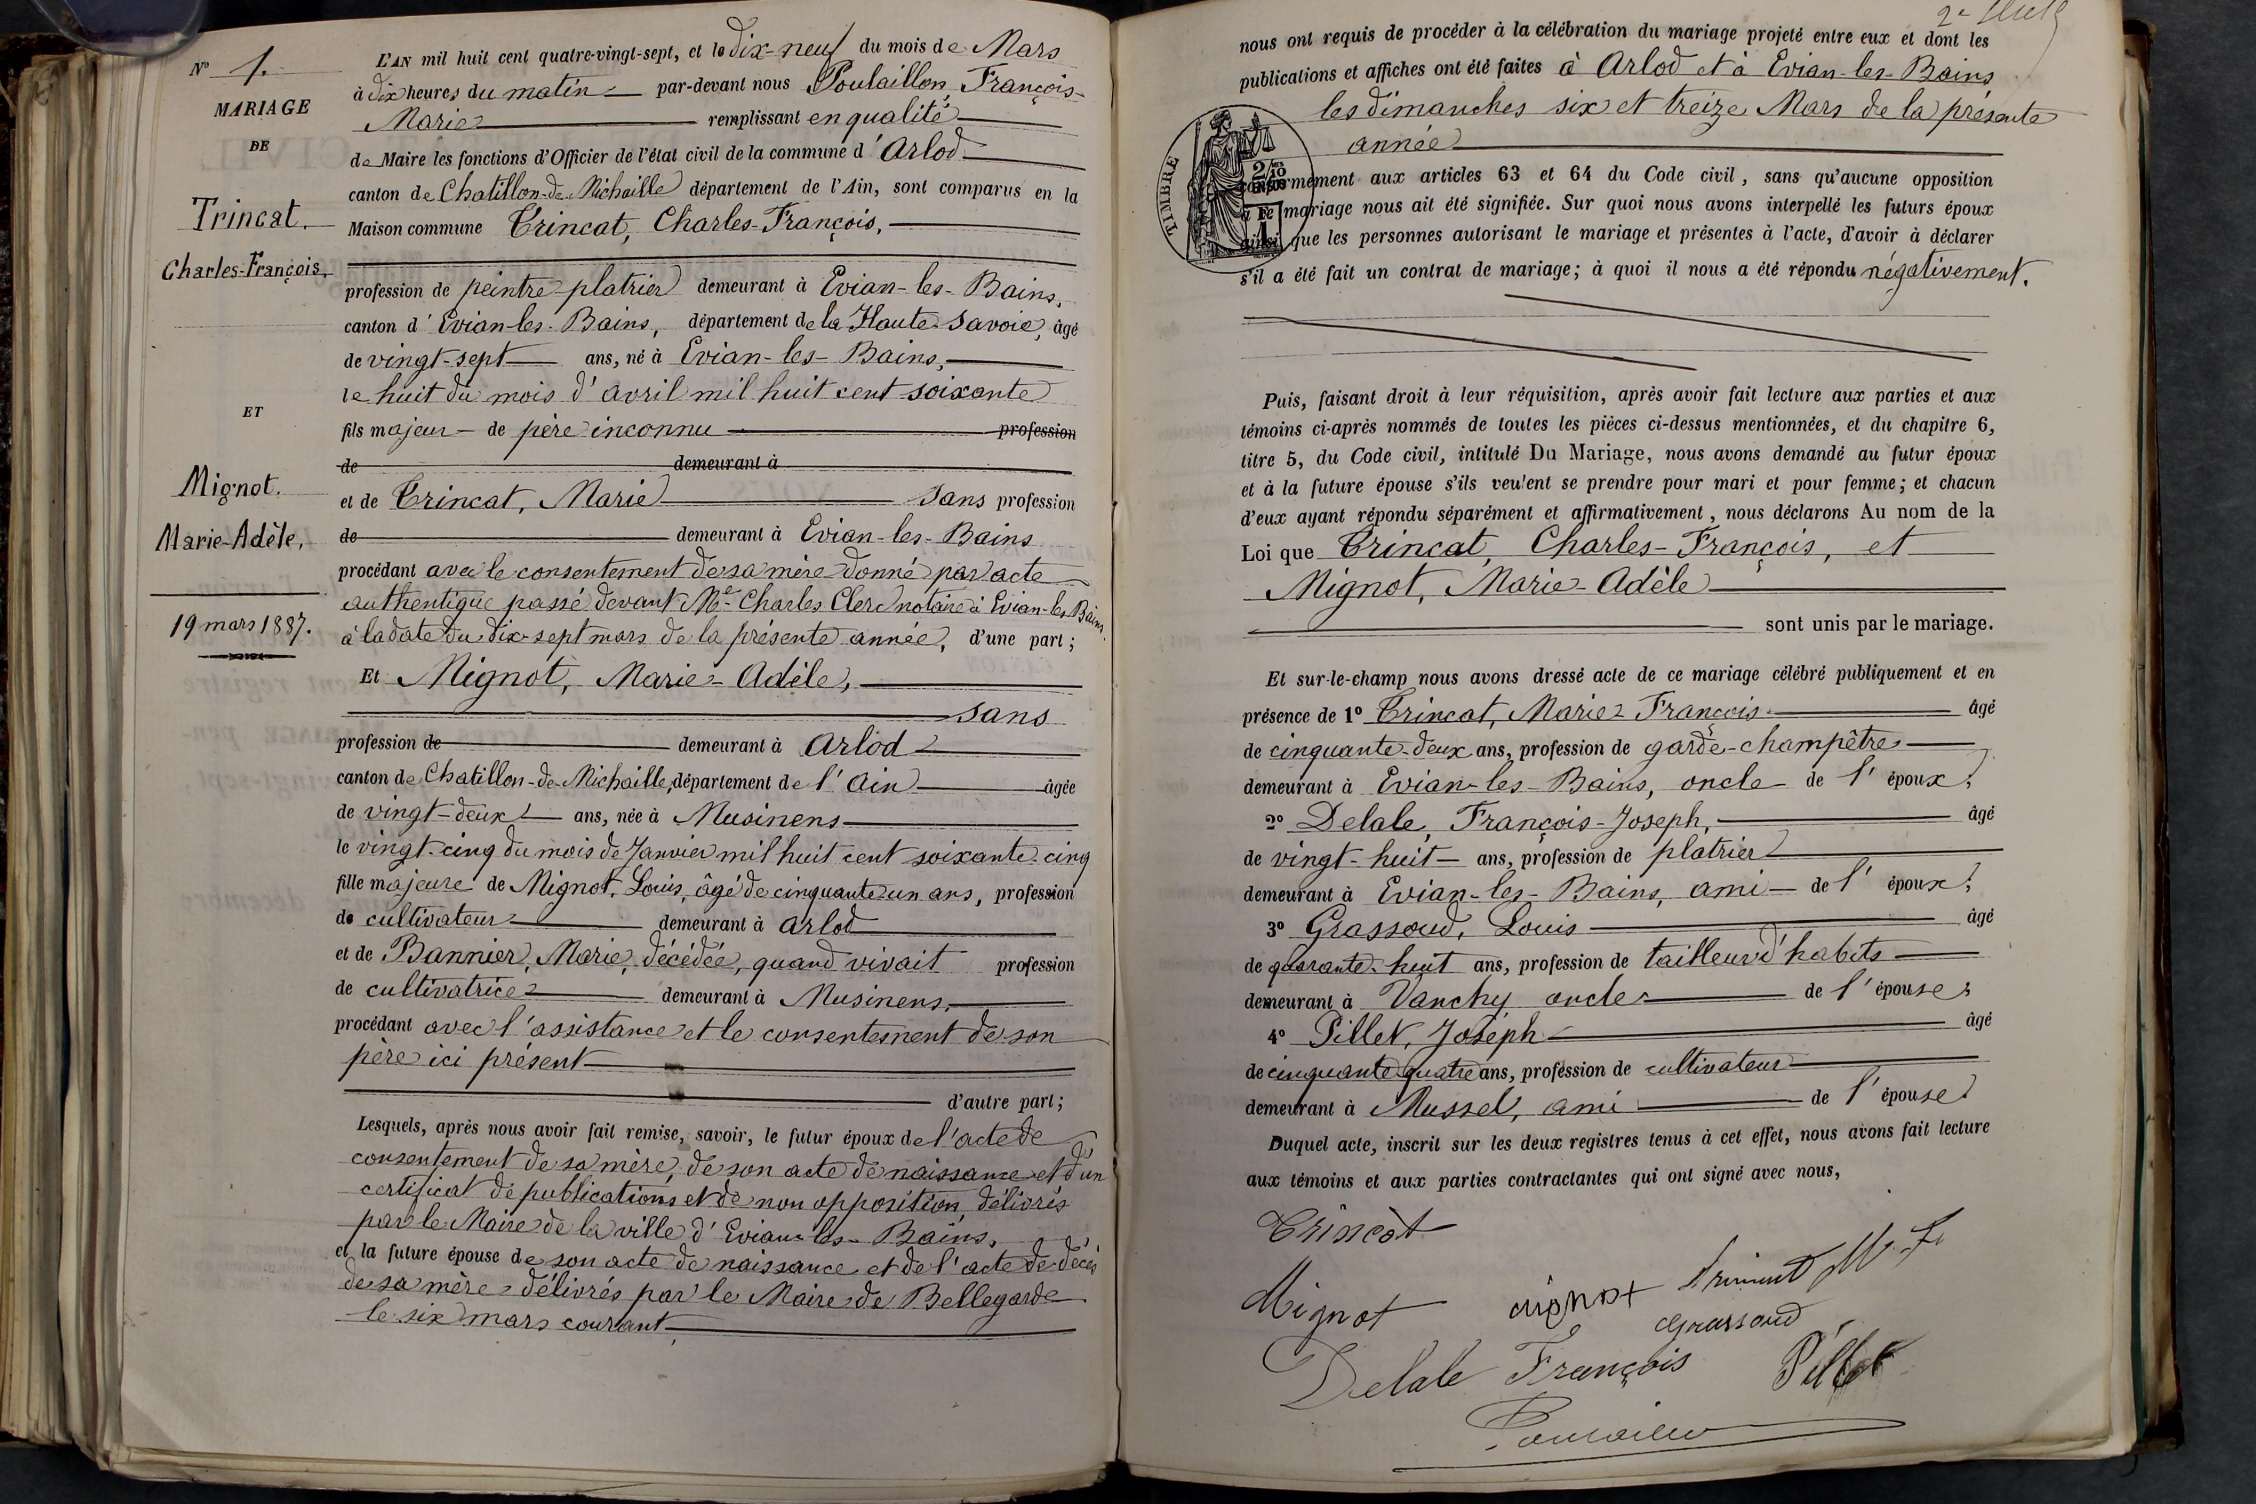 N° 1.
MARIAGE
DE
Trincat.
Charles-François.
ET
Mignot.
Marie-Adèle.
19 mars 1887.
L'AN mil huit cent quatre-vingt-sept, et le dix-neuf du mois de Mars
à dix heures du matin par-devant nous Poulaillon François-
Marie remplissant en qualité
de Maire les fonctions d'Officier de l'état civil de la commune d'Arlod
canton de Chatillon-de-Michaille département de l'Ain, sont comparus en la
Maison commune Trincat, Charles-François,
profession de peintre-platrier demeurant à Evian-les-Bains,
canton d'Evian-les-Bains, département de la Haute-Savoie, âgé
de vingt-sept ans, né à Evian-les-Bains,
le huit du mois d'avril mil huit cent soixante
fils majeur de père inconnu profession
de demeurant à
et de Trincat, Marie sans profession
de demeurant à Evian-les-Bains
procédant avec le consentement de sa mère donné par acte
authentique passé devant Me Charles Clerc notaire à Evian-les-Bains.
à la date du dix-sept mars de la présente année, d'une part;
Et Mignot, Marie-Adèle,
sans
profession de demeurant à Arlod
canton de Chatillon-de-Michaille, département de l'Ain âgée
de vingt-deux ans, née à Musinens
le vingt-cinq du mois de Janvier mil huit cent soixante-cinq
fille majeure de Mignot, Louis, âgé de cinquante-un ans, profession
de cultivateur demeurant à Arlod
et de Bannier, Marie, décédée, quand vivait profession
de cultivatrice demeurant à Musinens,
procédant avec l'assistance et le consentement de son
père ici présent
d'autre part;
Lesquels, après nous avoir fait remise, savoir, le futur époux de l'acte de
consentement de sa mère, de son acte de naissance et d'un
certificat de publications et de non opposition, délivrés
par le Maire de la ville d'Evian-les-Bains,
et la future épouse de son acte de naissance et de l'acte de décès
de sa mère délivrés par le Maire de Bellegarde
le six mars courant,
nous ont requis de procéder à la célébration du mariage projeté entre eux et dont les
publications et affiches ont été faites à Arlod et à Evian-les-Bains
les dimanches six et treize Mars de la présente
année
TIMBRE
conformément aux articles 63 et 64 du Code civil, sans qu'aucune opposition
à ce mariage nous ait été signifiée. Sur quoi nous avons interpellé les futurs époux
ainsi que les personnes autorisant le mariage et présentes à l'acte, d'avoir à déclarer
s'il a été fait un contrat de mariage; à quoi il nous a été répondu négativement.
Puis, faisant droit à leur réquisition, après avoir fait lecture aux parties et aux
témoins ci-après nommés de toutes les pièces ci-dessus mentionnées, et du chapitre 6,
titre 5, du Code civil, intitulé Du Mariage, nous avons demandé au futur époux
et à la future épouse s'ils veulent se prendre pour mari et pour femme; et chacun
d'eux ayant répondu séparément et affirmativement, nous déclarons Au nom de la
Loi que Trincat, Charles-François, et
Mignot, Marie-Adèle
sont unis par le mariage.
Et sur-le-champ nous avons dressé acte de ce mariage célébré publiquement et en
présence de 1° Trincat, Marie-François âgé
de cinquante-deux ans, profession de garde-champêtre
demeurant à Evian-les-Bains, oncle de l'époux;
2° Delale, François-Joseph, âgé
de vingt-huit ans, profession de platrier
demeurant à Evian-les-Bains, ami de l'époux;
3° Grassoud, Louis âgé
de quarante-huit ans, profession de tailleur d'habits
demeurant à Vanchy oncle de l'épouse;
4° Pillet, Joseph âgé
de cinquante-quatre ans, profession de cultivateur
demeurant à Mussel, ami de l'épouse
Duquel acte, inscrit sur les deux registres tenus à cet effet, nous avons fait lecture
aux témoins et aux parties contractantes qui ont signé avec nous,
Trincat
Mignot
Mignot
Grassoud
Delale François
Pillet